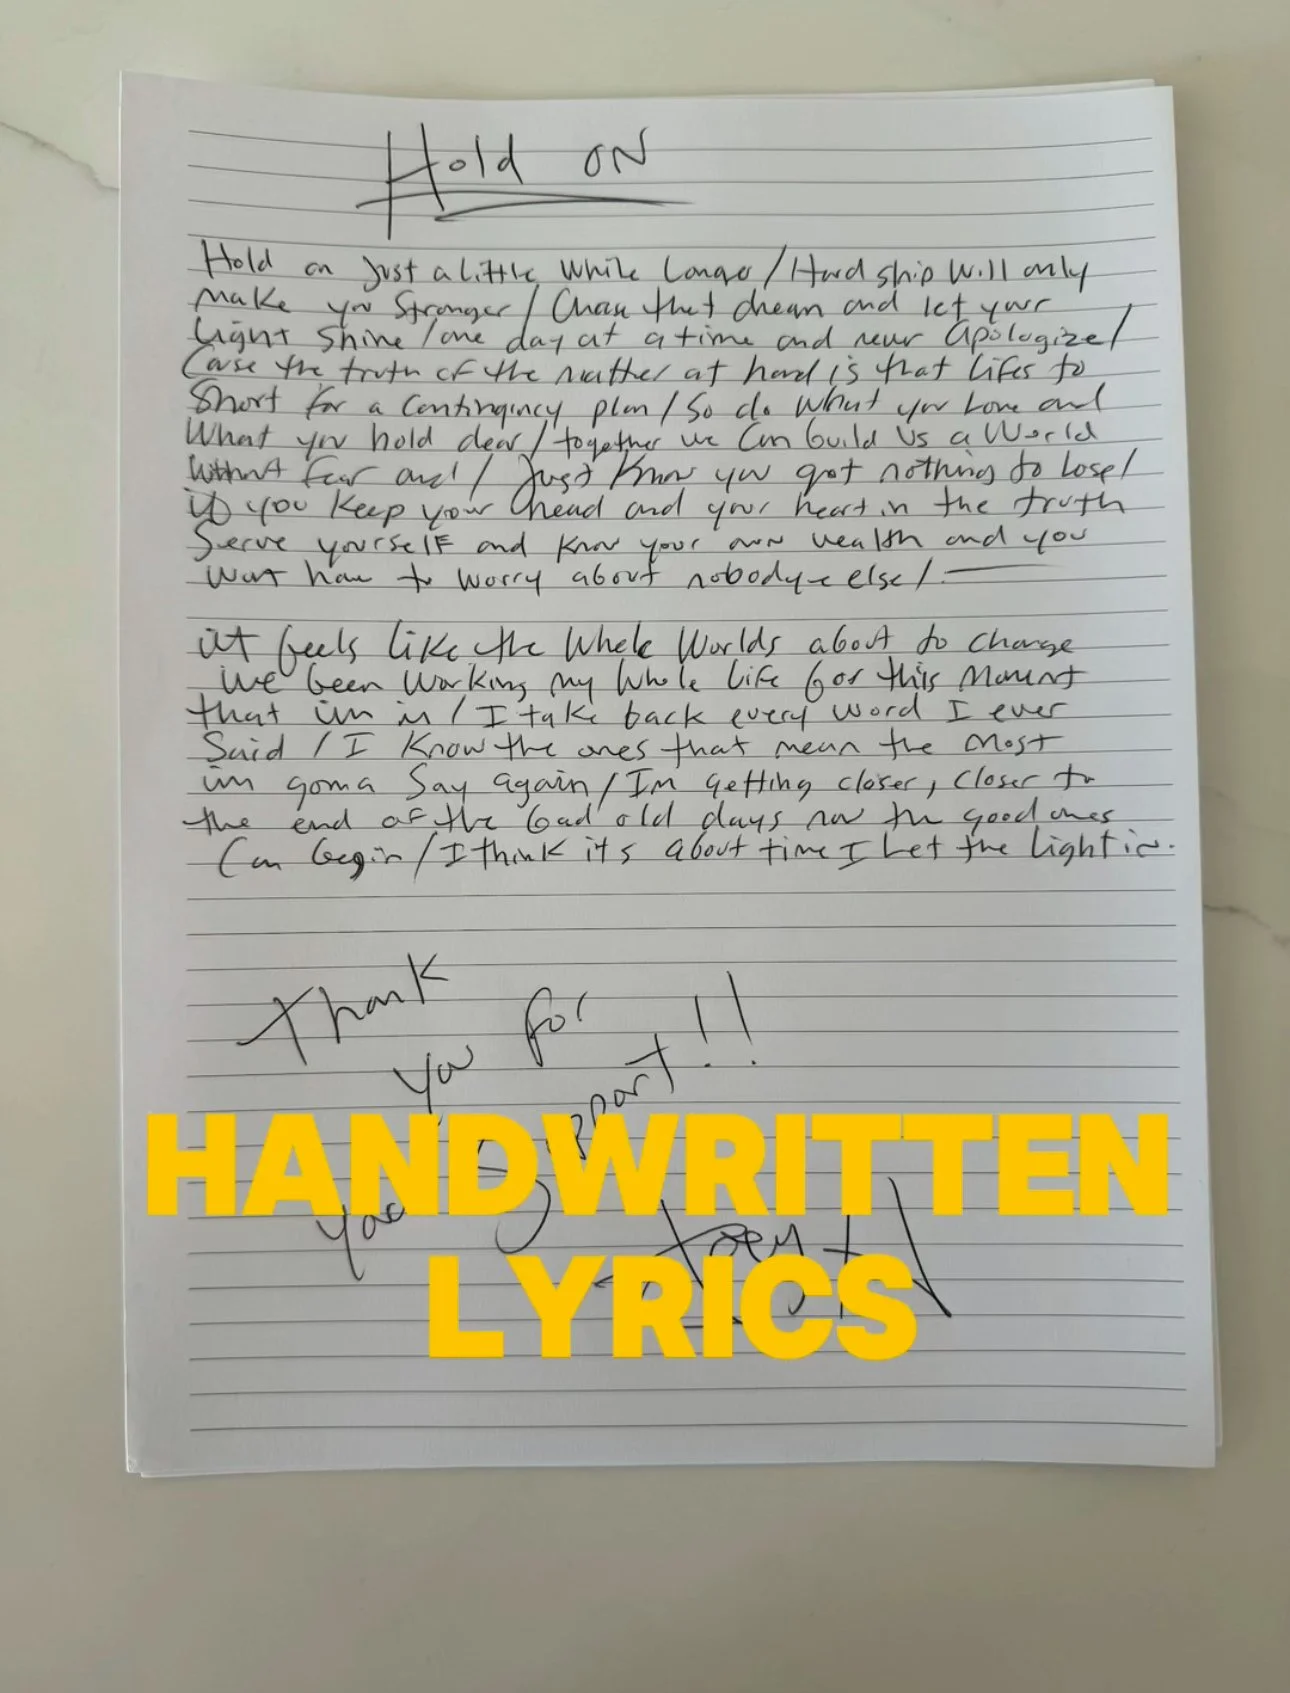 Hold ON
Hold on just a little while Longer / Hardship will only
make you stronger / Chase that dream and let your
light shine / one day at a time and never apologize /
Cause the truth of the matter at hand is that lifes to
short for a contingency plan / So do what you love and
What you hold dear / together we can build us a world
without fear and / just know you got nothing to lose /
if you keep your head and your heart in the truth
Serve yourself and know your own wealth and you
wont have to worry about nobody else /
it feels like the whole worlds about to change
ive been working my whole life for this moment
that im in / I take back every word I ever
Said / I know the ones that mean the most
im gonna say again / Im getting closer, closer to
the end of the bad old days now the good ones
Can begin / I think its about time I Let the light in.
Thank
you for
your support!!
HANDWRITTEN
LYRICS